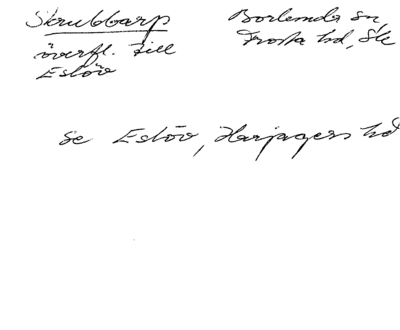 Skrubbarp
Borlunda sn,
Frosta hd, Sk
överfl. till
Eslöv
se Eslöv, Harjagers hd